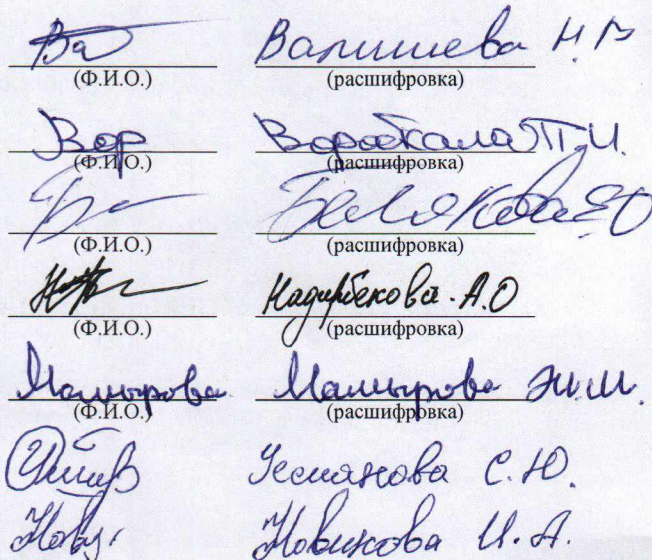 Ва Валишева Н.В
(Ф.И.О.) (расшифровка)
Вор
(Ф.И.О.) (расшифровка)
Белякова ЕО
(Ф.И.О.) (расшифровка)
Надирбекова А.О
(Ф.И.О.) (расшифровка)
Мамырова Мамырова Ж.М.
(Ф.И.О.) (расшифровка)
С.Ю.
Нову. Новикова И.А.